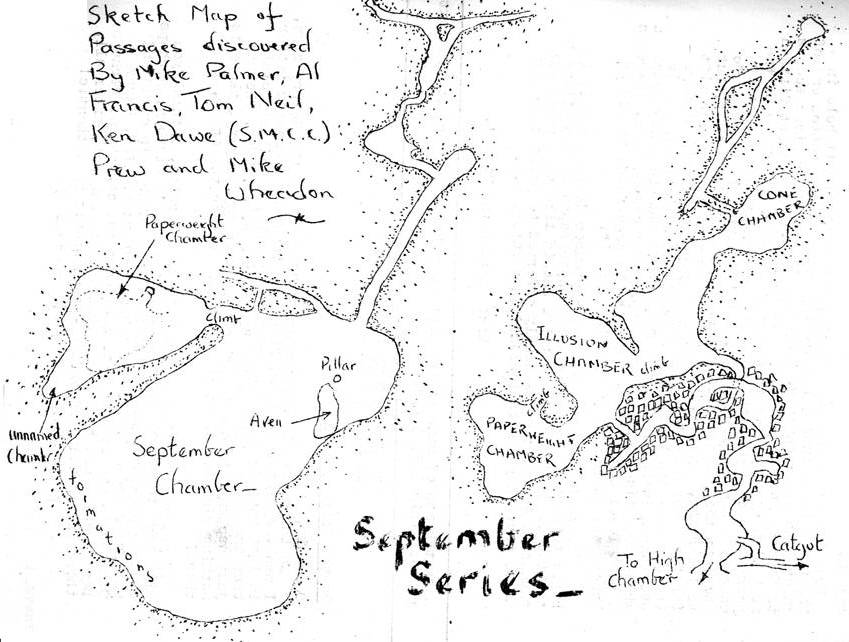 Sketch Map of
Passages discovered
By Mike Palmer, Al
Francis, Tom Neil,
Ken Dawe (S.M.C.C.)
Prew and Mike
Wheadon
Paperweight
Chamber
Climb
Pillar
Aven
unnamed
Chamber
September
Chamber
formations
CONE
CHAMBER
ILLUSION
CHAMBER
climb
Climb
PAPERWEIGHT
CHAMBER
September
Series
To High
Chamber
Catgut